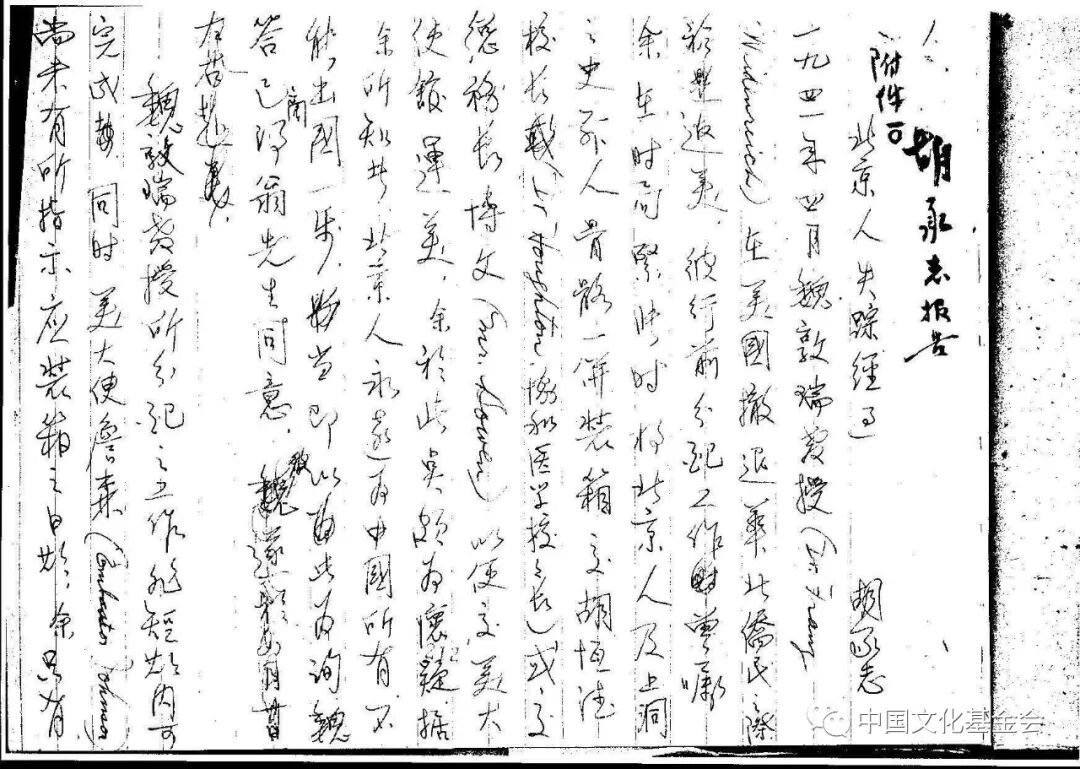 附件一 胡承志报告
北京人失踪经过
胡承志
一九四一年四月魏敦瑞教授(Dr. Franz
Weidenreich)在美國撤退華北僑民之際
返美,彼行前分配工作時曾囑
余在时局緊张时将北京人及上洞
之史前人骨骼一併装箱交胡恒德
校长(Houghton 協和医学校校长)或交
總務长博文(Mr. Bowen)以便交美大
使館運美,余於此點頗为懷疑,据
余所知北京人永遠为中國所有,不
能出國一步,當即以此为询,魏
答已得翁先生同意,
魏敦瑞教授所分配之工作能短期内可
完成,同时美大使詹森(Johnson)
尚未有所指示应装箱之日期,余只有
中国文化基金会